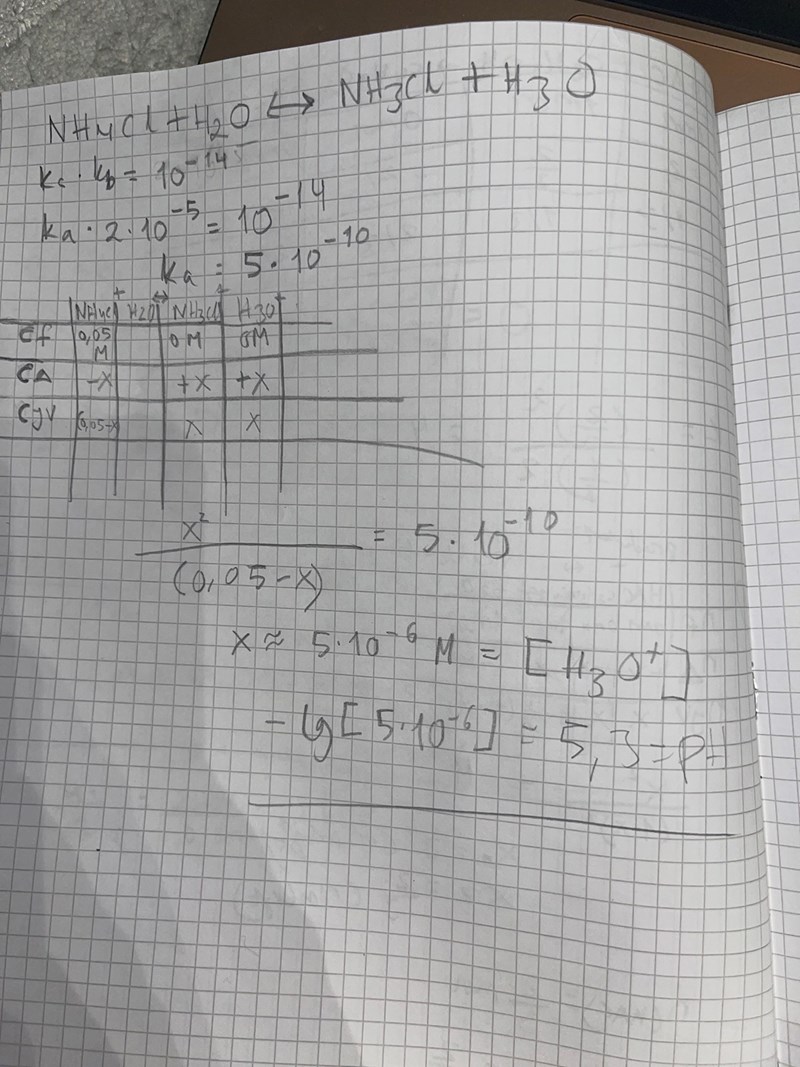 NH4Cl + H2O ↔ NH3Cl + H3O
ka · kb = 10^-14
ka · 2 · 10^-5 = 10^-14
ka = 5 · 10^-10
NH4Cl + H2O ↔ NH3Cl + H3O+
Cf 0,05 M 0 M 0 M
CΔ -x +x +x
CJV (0,05-x) x x
x² / (0,05-x) = 5 · 10^-10
x ≈ 5 · 10^-6 M = [H3O+]
-lg[5 · 10^-6] = 5,3 = pH